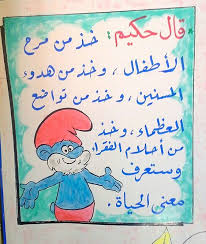 قال حكيم: خذ من مرح
الأطفال، وخذ من هدوء
المسنين، وخذ من تواضع
العظماء، وخذ
من أحلام الفقراء
وستعرف
معنى الحياة.